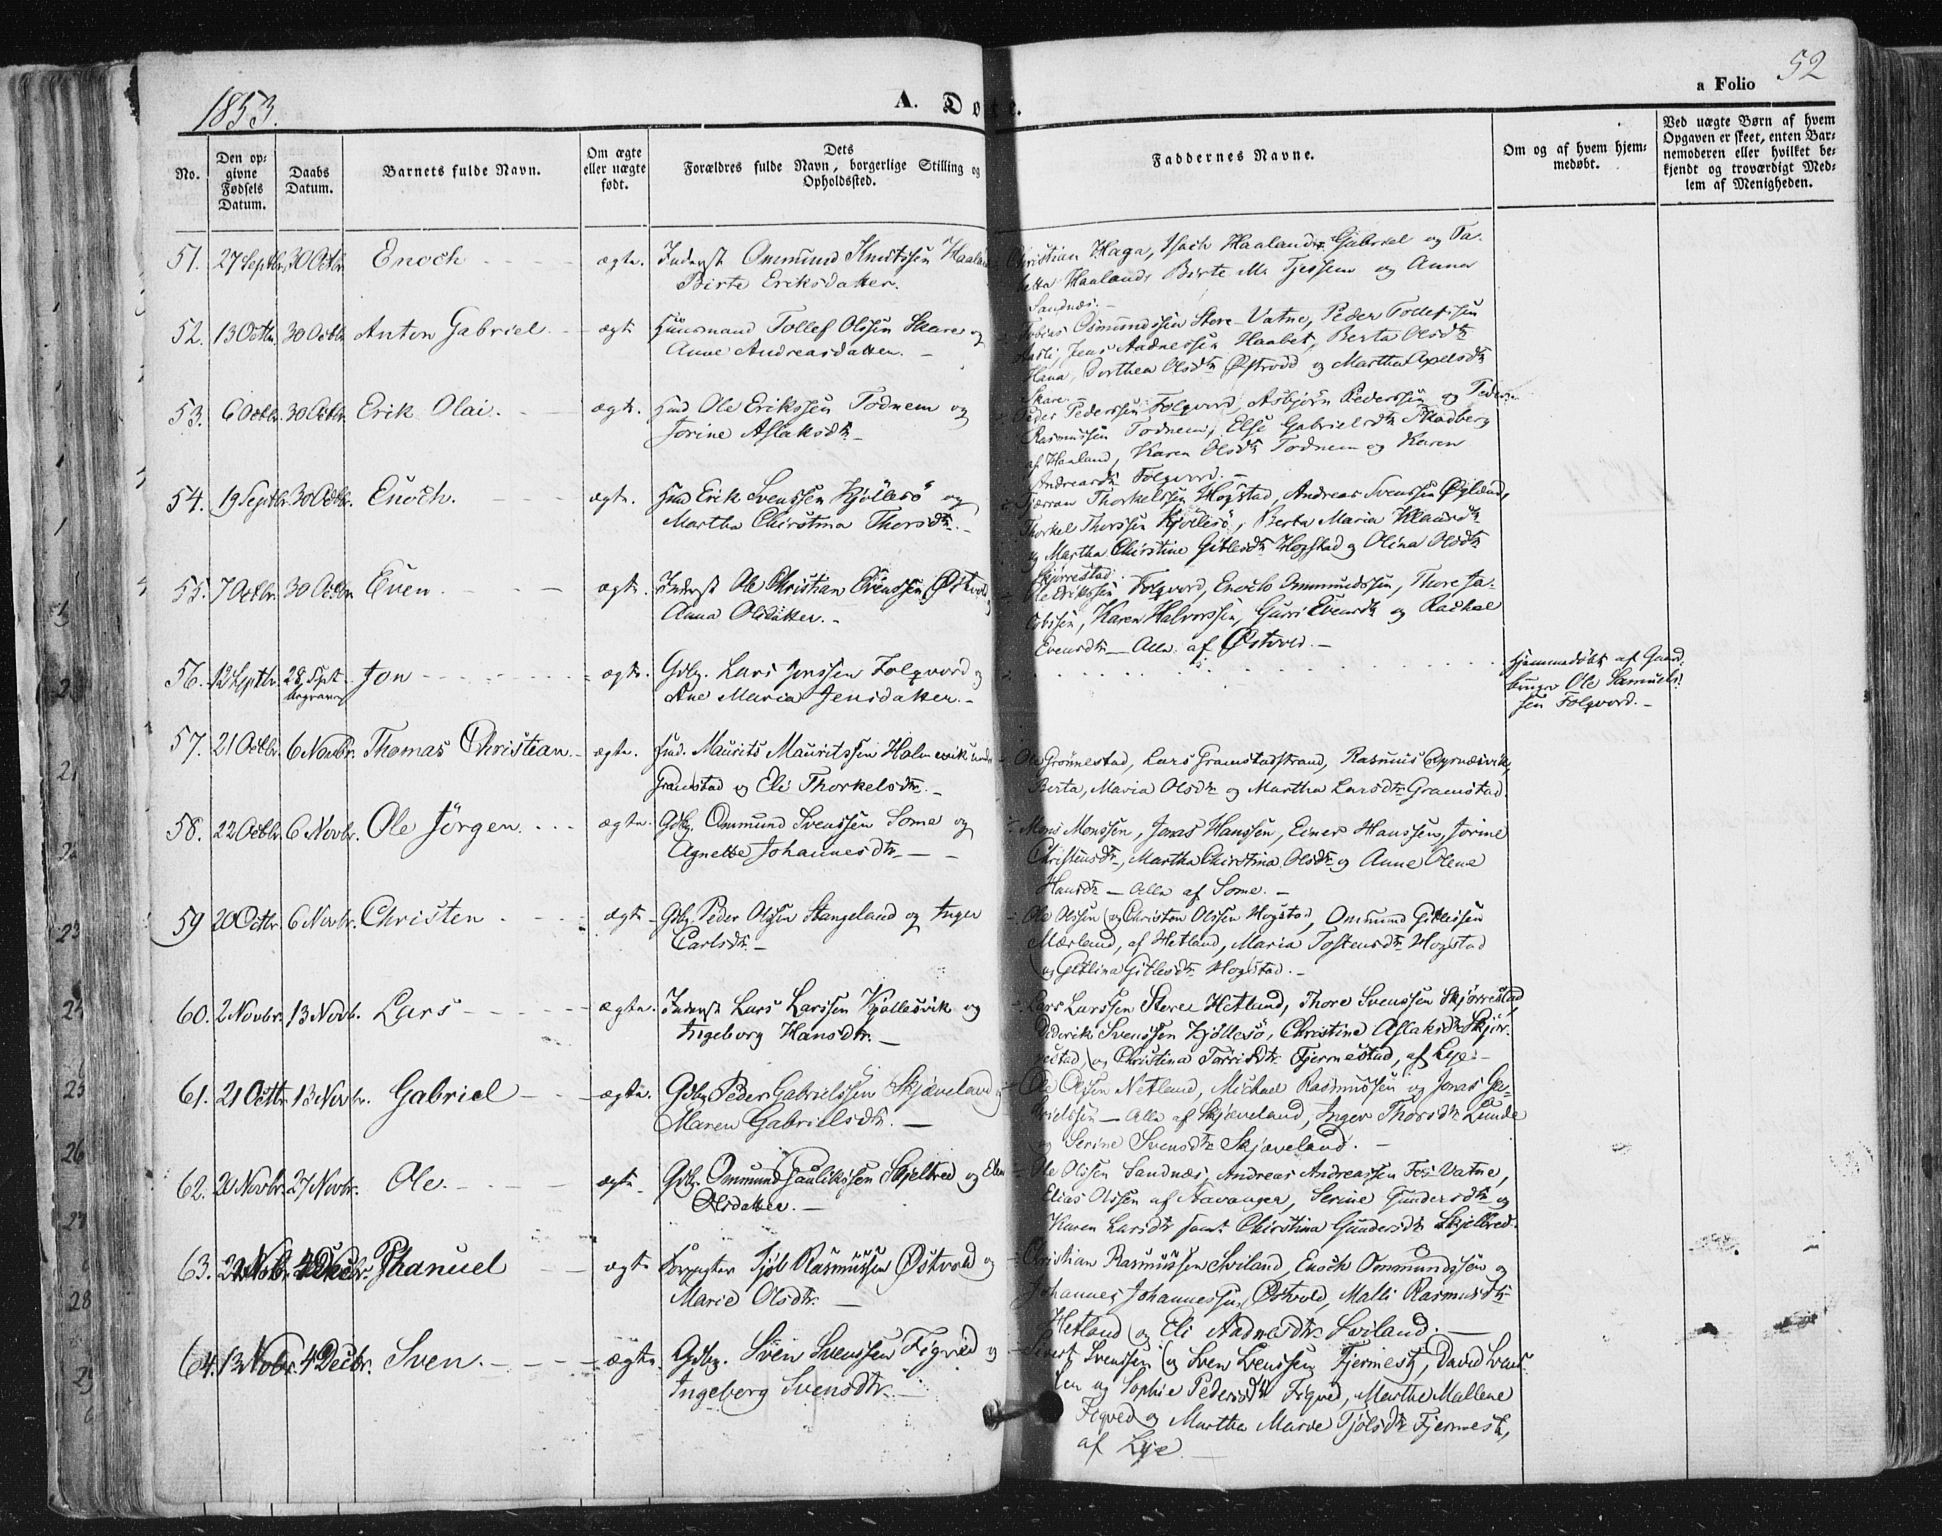 1853.
A. Døbte.
a Folio 52
No.
Den op-
givne
Fødsels
Datum.
Daabs
Datum.
Barnets fulde Navn.
Om ægte
eller uægte
født.
Dets
Forældres fulde Navn, borgerlige Stilling og
Opholdssted.
Faddernes Navne.
Om og af hvem hjem-
medøbt.
Ved uægte Børn af hvem
Opgaven er skeet, enten Bar-
nemoderen eller hvilket be-
kjendt og troværdigt Med-
lem af Menigheden.
51. 27 Septbr. 30 Octbr. Enoch ægte. Inderst Ommund Knutssen Haaland
Birte Eriksdatter.
Christian Haga, Isach Haaland, Gabriel og
Haaland, Birte M. Tjessem og Anna
Sandnæs.
52. 13 Octbr. 30 Octbr. Anton Gabriel ægte Huusmand Tollef Olssen Skare og
Anne Andreasdatter.
Tobias Osmundssen Store-Vatne, Peder Tollefssen
Jens Aadnessen Haabet, Berta Olsdtr
Hana, Dorthea Olsdtr Østrodd og Martha Axelsdtr
Skare.
53. 6 Octbr. 30 Octbr. Erik Olai. ægte. Hmd Ole Erikssen Todnem og
Jorine Aslaksdtr
Peder Pederssen Folqvord, Asbjørn Pederssen og Peder
Rasmussen Todnem, Else Gabrielsdtr Skadberg
af Haaland, Karen Olsdtr Todnem og Karen
Andreasdtr Folqvord.
54. 19 Septbr. 30 Octbr. Enoch. ægte. Hmd Erik Svenssen Kjöllesö og
Martha Christina Thorsdtr.
Thorkelssen Hogstad, Andreas Svenssen Øglænd,
Thorkel Thorssen Kjöllesö, Berta Maria
og Martha Christine Gitlesdtr Hogstad og Olina Olsdtr
Skjörrestad.
55. 7 Octbr. 30 Octbr. Even. ægte. Inderst Ole Christian Evenssen Østvold og
Anna Olsdatter.
Ole Erikssen Folqvord, Enoch Ommundssen, Thore Ja-
cobssen, Karen Halvorssen, Gurri Evensdtr og Rachel
Evensdtr — Alle af Østvold.
56. 12 Septbr. 28 Sept. Jon ægte Gdbg. Lars Jonssen Folqvord og
Ane Maria Jensdatter.
Hjemmedøbt af Gaard-
bruger Ole Samuels-
sen Folqvord.
57. 21 Octbr. 6 Novbr. Thomas Christian ægte. Hmd. Maurits Mauritssen Holmevik under
Gramstad og Eli Thorkelsdtr.
Ole Grønnestad, Lars Gramstadstrand, Rasmus Dyrnæsvik,
Berta, Maria Olsdtr og Martha Larsdtr Gramstad.
58. 22 Octbr. 6 Novbr. Ole Jörgen. ægte Gdbg. Ommund Svenssen Some og
Agnette Johannesdtr.
Mons Monssen, Jonas Hanssen, Einer Hanssen, Jorine
Christensdtr, Martha Christina Olsdtr og Anne Olene
Hansdtr — Alle af Some.
59 20 Octbr. 6 Novbr. Christen ægte Gdbg. Peder Olssen Stangeland og Inger
Carlsdtr.
Ole Olssen og Christen Olssen Hogstad, Ommund Gitlessen
Mærland, af Hetland, Maria Tostensdtr Hogstad
og Gitlina Gitlesdtr Hogstad.
60. 2 Novbr. 13 Novb. Lars ægte. Inderst Lars Larssen Kjöllesvik og
Ingeborg Hansdtr.
Lars Larssen Store Hetland, Thore Svenssen Skjörrestad,
Diderik Svenssen Kjöllesö, Christine Aslaksdtr Skjör-
restad og Christina Torrisdtr. Fjermestad, af Lye.
61. 21 Octbr 13 Novbr. Gabriel ægte. Gdbg. Peder Gabrielssen Skjæveland og
Maren Gabrielsdtr.
Ole Olssen Netland, Michael Rasmussen og Jonas Ga-
brielssen — Alle af Skjæveland, Inger Thorsdtr Lunde
og Serine Svensdtr Skjæveland.
62. 20 Novbr. 27 Novbr. Ole. ægte Gdbg. Ommund Paulikssen Skjelbred og Elen
Olsdatter.
Ole Olssen Sandnæs, Andreas Andreassen Fos-Vatne,
Elias Olssen af Stavanger, Serine Gundersdtr og
Karen Larsdtr samt Christina Gundersdtr Skjelbred.
63. Novbr. 4 Decbr. Phanuel ægte Tjöl Rasmussen Østvold og
Marie Olsdtr.
Christian Rasmussen Sviland, Enoch Ommundssen og
Johannes Johannessen Østvold, Malli Rasmusdtr
Hetland og Eli Aadnesdtr Sviland.
64. 13 Novbr. 4 Decbr. Sven. ægte Gdbg. Sven Svenssen Figved og
Ingeborg Svensdtr.
Sivert Svenssen og Sven Svenssen Fjermest, David Svens-
sen og Sophie Pedersdtr Figved, Marthe Mallene
Figved og Martha Marie Tjölsdtr Fjermest,
af Lye.